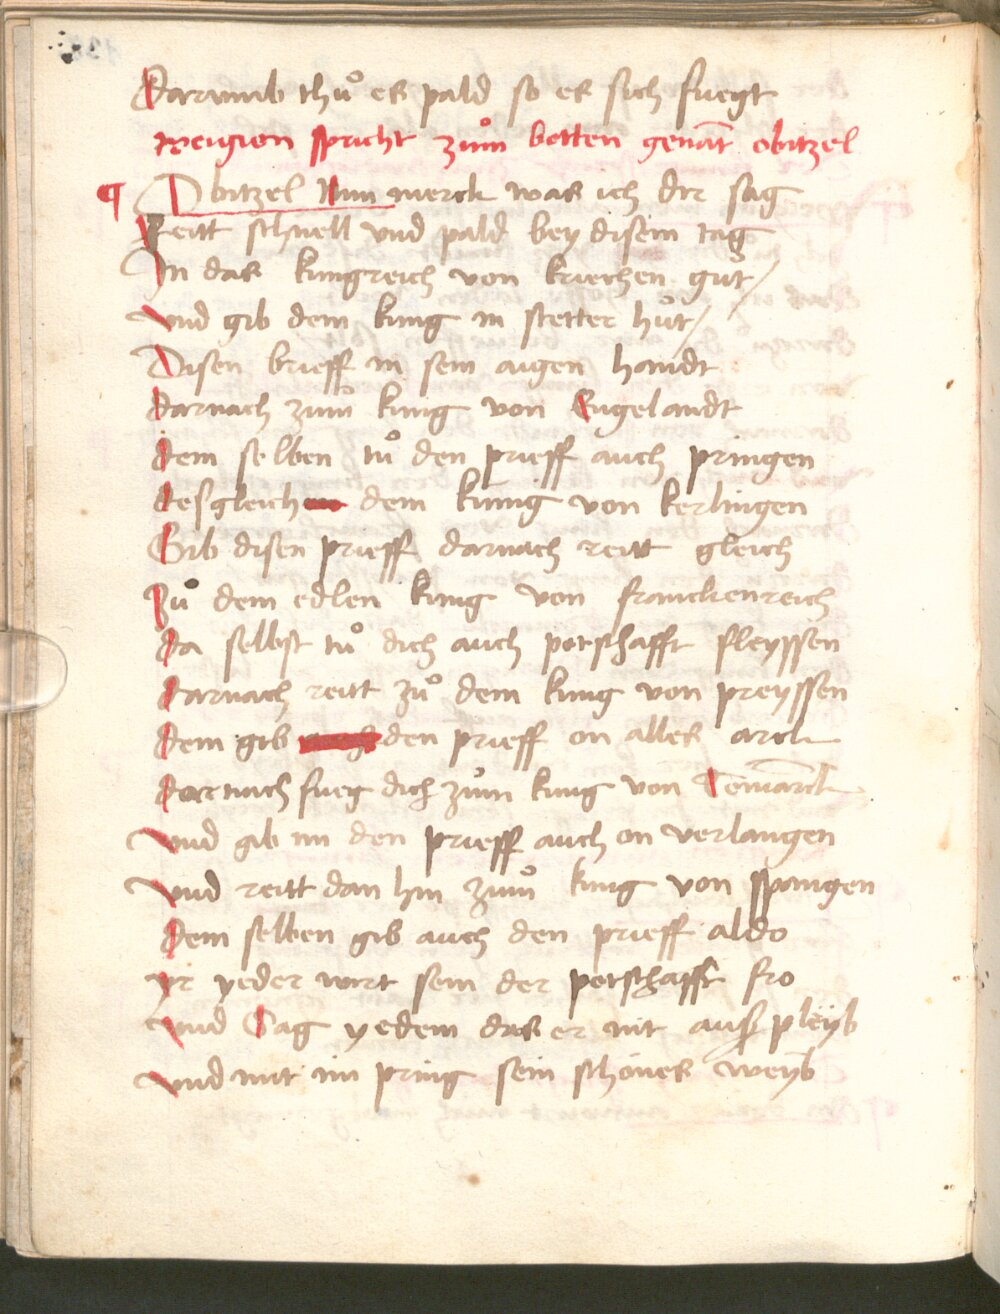 Darumb thuͦ es pald so es sich fuegt
weigion spricht zuͦm botten genāt obitzel
¶ Obitzel Nun merck was ich dir sag
Reitt schnell vnd pald bey disem tag
In das kungreich von kriechen gut /
Vnd gib dem kung in stetter huͦt /
Disen brieff in sein aigen handt
Darnach zum kunig von Engelandt
Dem selben tuͦ den prieff auch pringen
Desgleich dem kunig von kerlingen
Gib disen prieff darnach reitt gleich
Zuͦ dem edlen kunig von franckenreich
Da selbst tuͦ dich auch potschafft fleyssen
Darnach reitt zuͦ dem kung von preyssen
Dem gib den prieff on alles arck
Dar nach fueg dich zuͦm kung von Tenmārck
Vnd gib im den prieff auch on verlangen
Vnd reitt dan hin zuͦm kung von spangen
Dem selben gib auch den prieff aldo
Ir yeder wirt sein der potschafft fro
Vnd Sag yedem das er nit aus pleyb
Vnd mit im pring sein schönes weyb